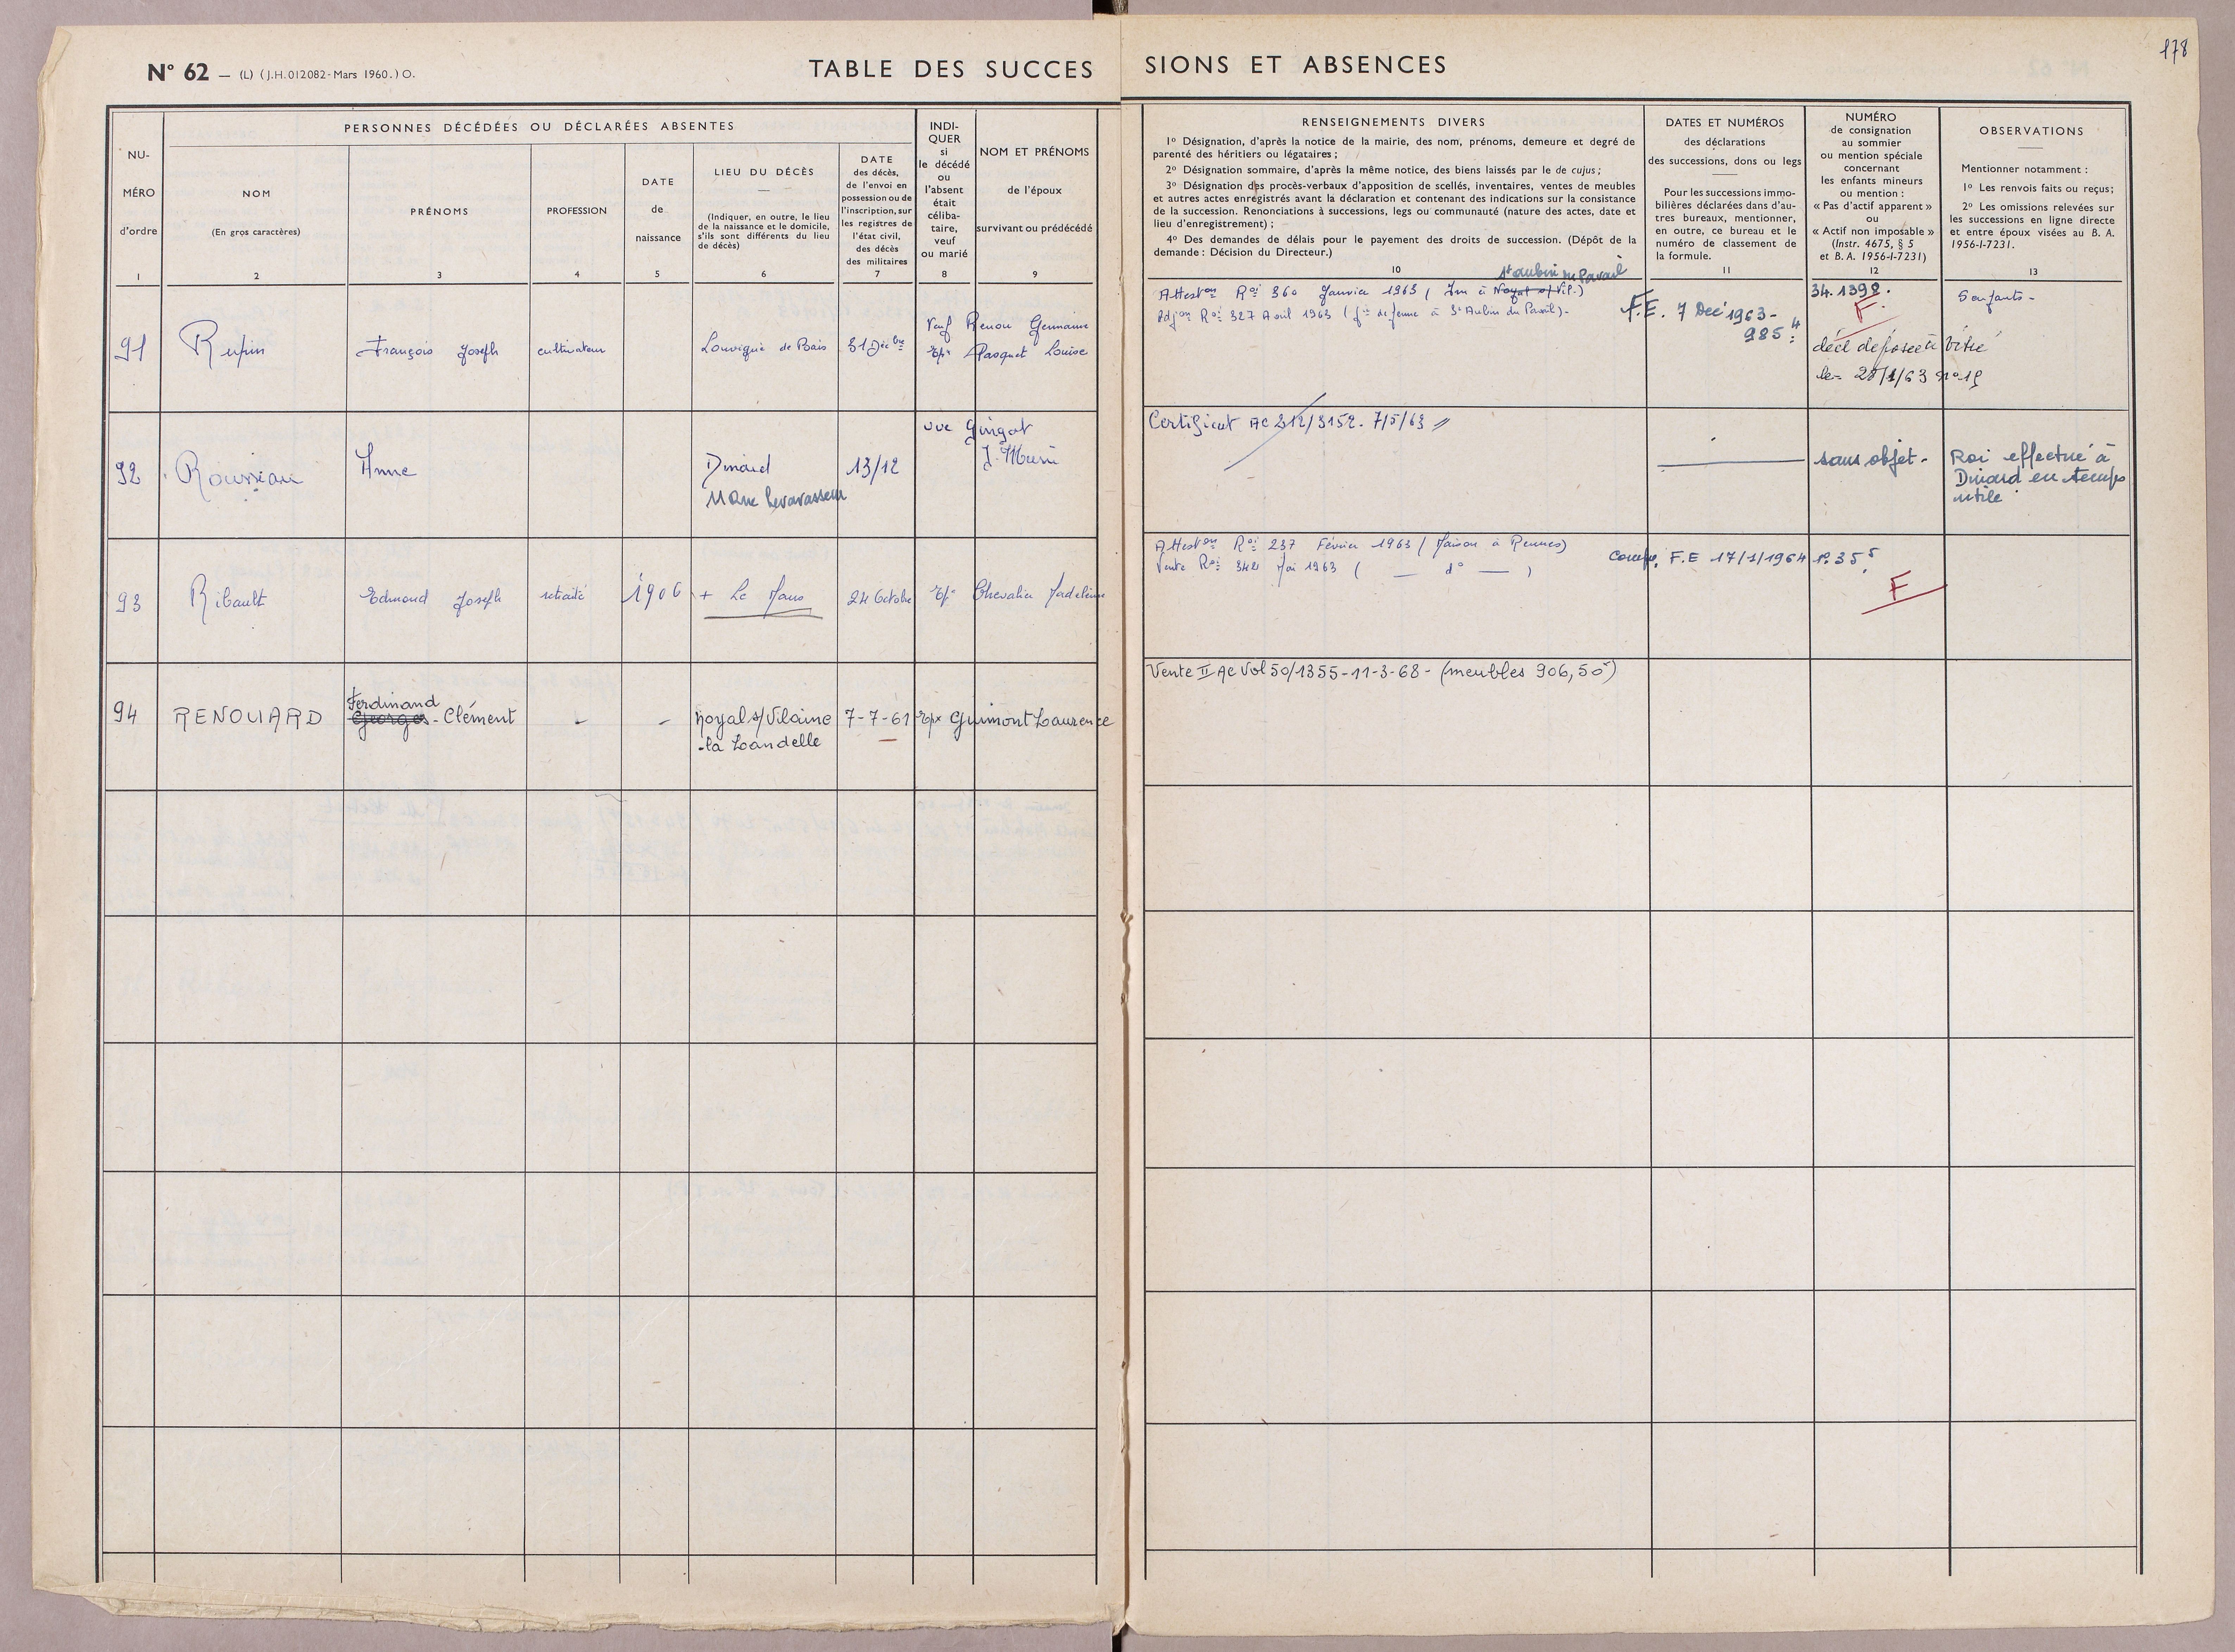 178
N° 62 — (L) (J.H. 012082 - Mars 1960.) O.
TABLE DES SUCCESSIONS ET ABSENCES
NU-
MÉRO
d'ordre
1
PERSONNES DÉCÉDÉES OU DÉCLARÉES ABSENTES
NOM
(En gros caractères)
2
PRÉNOMS
3
PROFESSION
4
DATE
de
naissance
5
LIEU DU DÉCÈS
(Indiquer, en outre, le lieu
de la naissance et le domicile,
s'ils sont différents du lieu
de décès)
6
DATE
des décès,
de l'envoi en
possession ou de
l'inscription, sur
les registres de
l'état civil,
des décès
des militaires
7
INDI-
QUER
si
le décédé
ou
l'absent
était
céliba-
taire,
veuf
ou marié
8
NOM ET PRÉNOMS
de l'époux
survivant ou prédécédé
9
RENSEIGNEMENTS DIVERS
1° Désignation, d'après la notice de la mairie, des nom, prénoms, demeure et degré de
parenté des héritiers ou légataires ;
2° Désignation sommaire, d'après la même notice, des biens laissés par le de cujus ;
3° Désignation des procès-verbaux d'apposition de scellés, inventaires, ventes de meubles
et autres actes enregistrés avant la déclaration et contenant des indications sur la consistance
de la succession. Renonciations à successions, legs ou communauté (nature des actes, date et
lieu d'enregistrement) ;
4° Des demandes de délais pour le payement des droits de succession. (Dépôt de la
demande : Décision du Directeur.)
10
DATES ET NUMÉROS
des déclarations
des successions, dons ou legs
Pour les successions immo-
bilières déclarées dans d'au-
tres bureaux, mentionner,
en outre, ce bureau et le
numéro de classement de
la formule.
11
NUMÉRO
de consignation
au sommier
ou mention spéciale
concernant
les enfants mineurs
ou mention :
« Pas d'actif apparent »
ou
« Actif non imposable »
(Instr. 4675, § 5
et B. A. 1956-I-7231)
12
OBSERVATIONS
Mentionner notamment :
1° Les renvois faits ou reçus ;
2° Les omissions relevées sur
les successions en ligne directe
et entre époux visées au B. A.
1956-I-7231.
13
91
Rupin
François Joseph
cultivateur
Louvigné de Bais
31 Décbre
Veuf Renou Germaine
Epx Pasquet Louise
St Aubin du Pavail
Atteston Roi 360 Janvier 1963 ( Im à Noyal s/ Vil.)
Adjon Roi 327 Avril 1963 ( de ferme à St Aubin du Pavail) -
F.E. 7 Dec 1963 -
985 4
34. 1398.
F.
décl déposée à Vitré
le 28/1/63 n° 19
5 enfants -
92
Rousseau
Anne
Dinard
11 Rue Levavasseur
13/12
vve Gingat
J. Marie
Certificat AC 212/3152. 7/5/63 //
sans objet -
Roi effectué à
Dinard en temps
utile
93
Ribault
Edmond Joseph
retraité
1906
+ Le Mans
24 Octobre
Epx Chevalier Madeleine
Atteston Roi 237 Février 1963 ( Maison à Rennes)
Vente Roi 342 Mai 1963 ( — d° — )
F.E 17/1/1964 n° 35 5
F
94
RENOUARD
Ferdinand
Georges - Clément
-
-
Noyal s/ Vilaine
-la Landelle
7-7-61
Epx Guimont Laurence
Vente II AC Vol 50/1355-11-3-68 - (meubles 906,50)